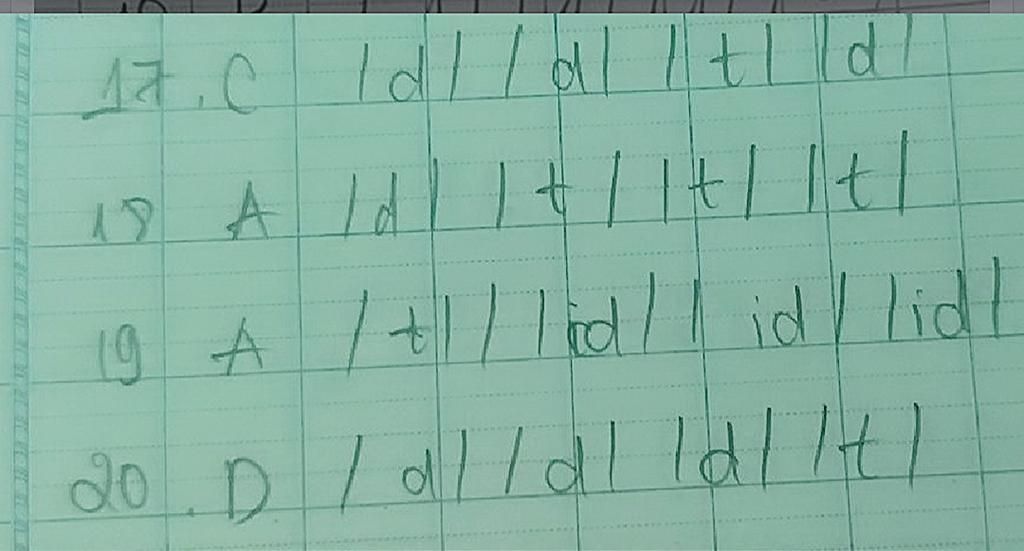 17. C /d/ /d/ /t/ /d/
18 A /d/ /t/ /t/ /t/
19 A /t/ / /id/ / id/ /id/
20. D /d/ /d/ /d/ /t/